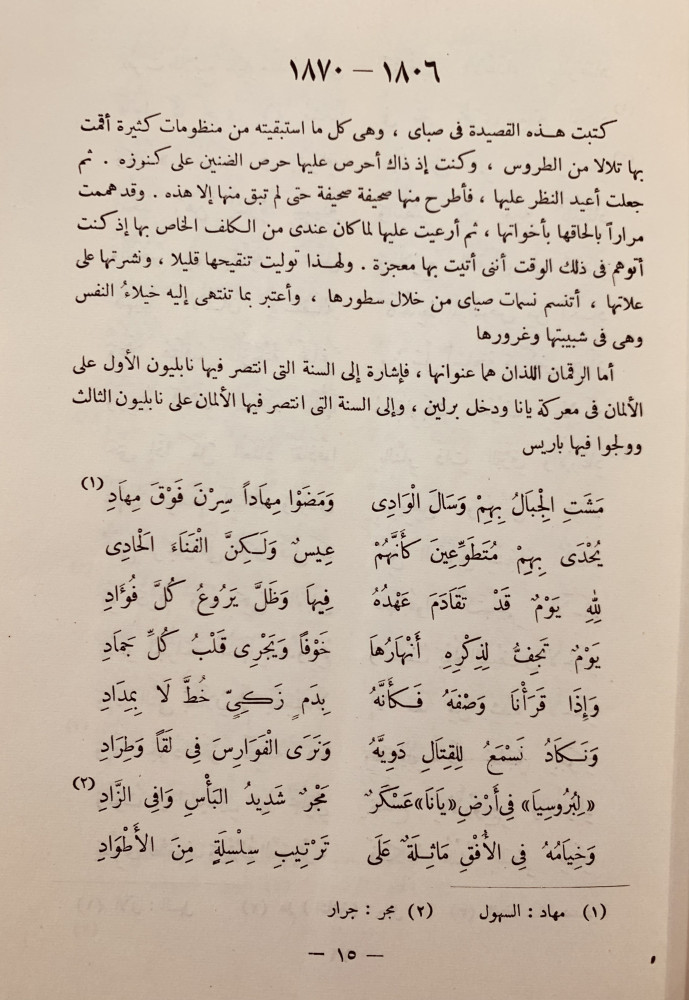 ١٨٠٦ — ١٨٧٠
كتبت هـذه القصيدة فى صباى ، وهى كل ما استبقيته من منظومات كثيرة أقمت
بها تلالا من الطروس ، وكنت إذ ذاك أحرص عليها حرص الضنين على كنوزه . ثم
جعلت أعيد النظر عليها ، فأطرح منها صحيفة صحيفة حتى لم تبق منها إلا هذه . وقد هممت
مراراً بالحاقها بأخواتها ، ثم أرعيت عليها لما كان عندى من الكلف الخاص بها إذ كنت
أتوهم فى ذلك الوقت أننى أتيت بها معجزة . ولهـذا توليت تنقيحها قليلا ، ونشرتها على
علاتها ، أتنسم نسمات صباى من خلال سطورها ، وأعتبر بما تنتهى إليه خيلاءُ النفس
وهى فى شبيبتها وغرورها
أما الرقمان اللذان هما عنوانها ، فإشارة إلى السنة التى انتصر فيها نابليون الأول على
الألمان فى معركة يانا ودخل برلين ، وإلى السنة التى انتصر فيها الألمان على نابليون الثالث
وولجوا فيها باريس
مَشَتِ الْجِبَالُ بِهِمْ وَسَالَ الْوَادِى وَمَضَوْا مِهَاداً سِرْنَ فَوْقَ مِهَادِ (١)
يُحْدَى بِهِمْ مُتَطَوِّعِينَ كَأَنَّهُمْ عِيسٌ وَلَـكِنَّ الْفَنَاءَ الْحَادِى
لِلهِ يَوْمٌ قَدْ تَقَادَمَ عَهْدُهُ فِيهَا وَظَلَّ يَرُوعُ كُلَّ فُؤَادِ
يَوْمٌ تَجِفُّ لِذِكْرِهِ أَنْهَارُهَا خَوْفاً وَيَجْرِى قَلْبُ كُلِّ جَمَادِ
وَإِذَا قَرَأْنَا وَصْفَهُ فَـكَأَنَّهُ بِدَمٍ زَكِىٍّ خُطَّ لَا بِمِدَادِ
وَنَـكَادُ نَسْمَعُ لِلقِتَالِ دَوِيَّهُ وَنَرَى الْفَوَارِسَ فِى لَقاً وَطِرَادِ
«لِبُرُوسِيَا» فِى أَرْضِ «يَانَا» عَسْكَرٌ مَجْرٌ شَدِيدُ الْبَأْسِ وَافِى الزَّادِ (٢)
وَخِيَامُهُ فِى الأُفْقِ مَاثِـلَةٌ عَلَى تَرْتِيبِ سِلْسِلَةٍ مِنَ الأَطْوَادِ
(١) مهاد : السهول (٢) مجر : جرار
— ١٥ —